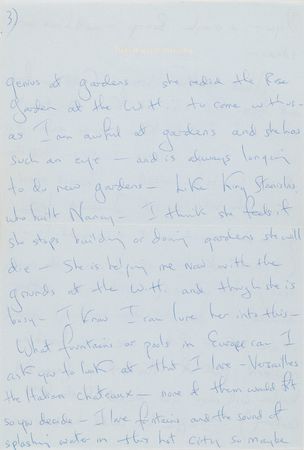 3)
genius at gardens - she redid the Rose
Garden at the W.H. to come with us.
as I am awful at gardens and she has
such an eye — and is always longing
to do new gardens — Like King Stanislas
who built Nancy - I think she feels if
she stops building or doing gardens she will
die — She is helping me now with the
grounds at the W.H. and though she is
busy - I know I can lure her into this —
What fountains or pools in Europe can I
ask you to look at that I love - Versailles
the Italian chateaux - none of them would fit
so you decide - I love fountains and the sound of
splashing water in this hot city so maybe